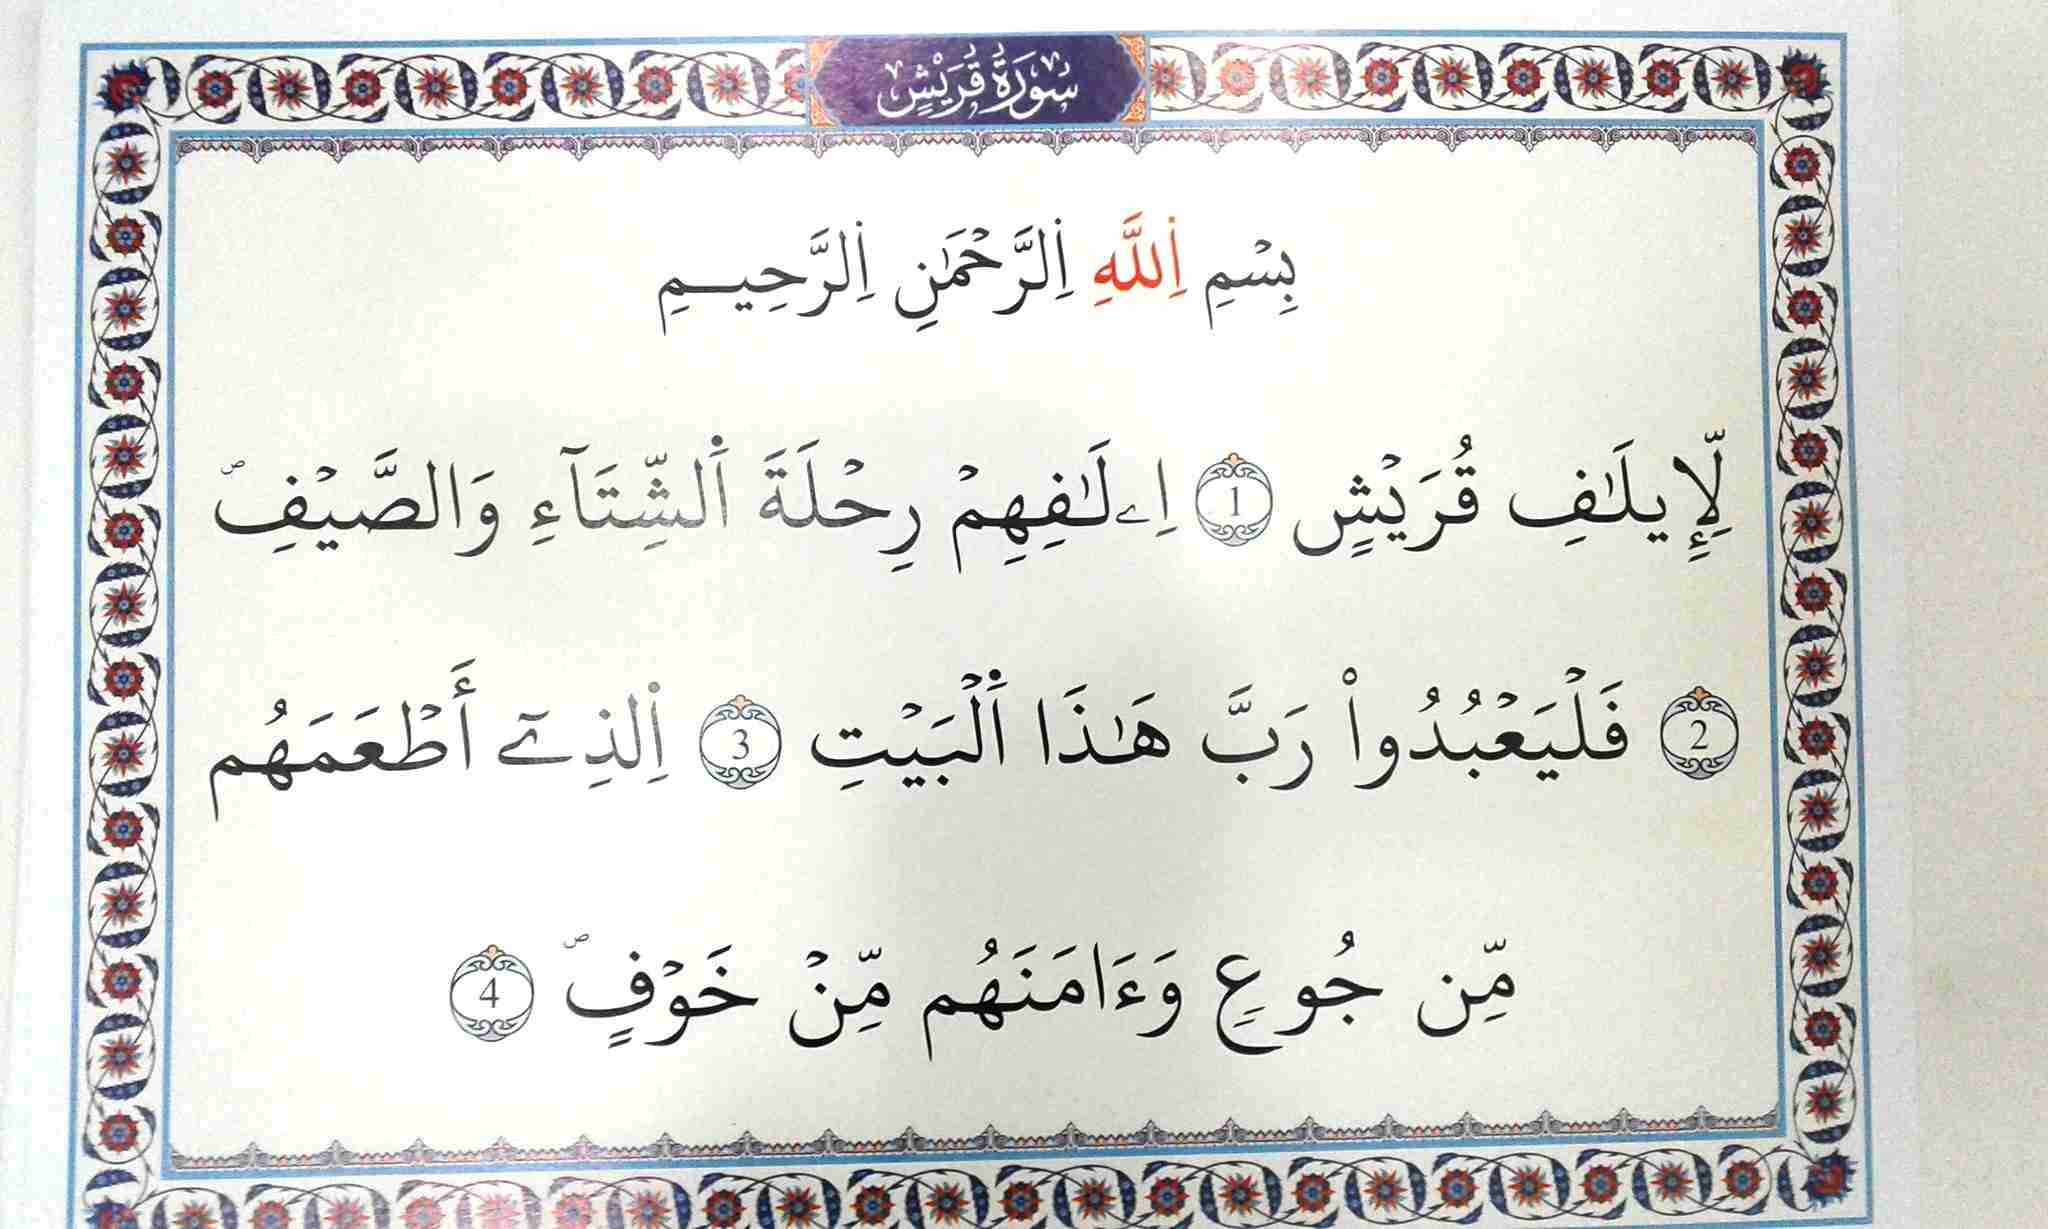 سُورَةُ قُرَيْشٍ
بِسْمِ اِ۬للَّهِ اِ۬لرَّحْمَٰنِ اِ۬لرَّحِيمِ
لِّإِيلَٰفِ قُرَيْشٍ 1 اِۦلَٰفِهِمْ رِحْلَةَ اَ۬لشِّتَآءِ وَالصَّيْفِۖ
2 فَلْيَعْبُدُواْ رَبَّ هَٰذَا اَ۬لْبَيْتِ 3 اِ۬لذِےٓ أَطْعَمَهُم
مِّن جُوعٍ وَءَامَنَهُم مِّنْ خَوْفٍۖ 4